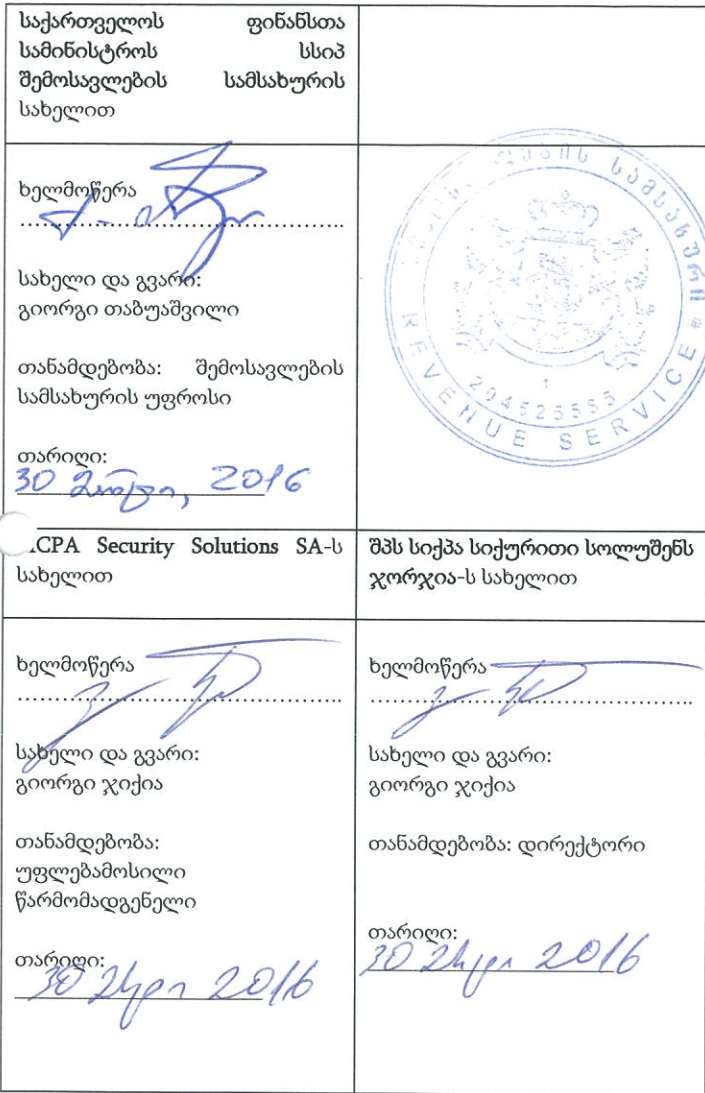 საქართველოს ფინანსთა
სამინისტროს სსიპ
შემოსავლების სამსახურის
სახელით
ხელმოწერა
სახელი და გვარი:
გიორგი თაბუაშვილი
თანამდებობა: შემოსავლების
სამსახურის უფროსი
თარიღი:
30 2016
სამსახური
REVENUE SERVICE
1
CPA Security Solutions SA-ს
სახელით
ხელმოწერა
სახელი და გვარი:
გიორგი ჯიქია
თანამდებობა:
უფლებამოსილი
წარმომადგენელი
თარიღი:
30 2016
შპს სიქპა სიქურითი სოლუშენს
ჯორჯია-ს სახელით
ხელმოწერა
სახელი და გვარი:
გიორგი ჯიქია
თანამდებობა: დირექტორი
თარიღი:
30 2016